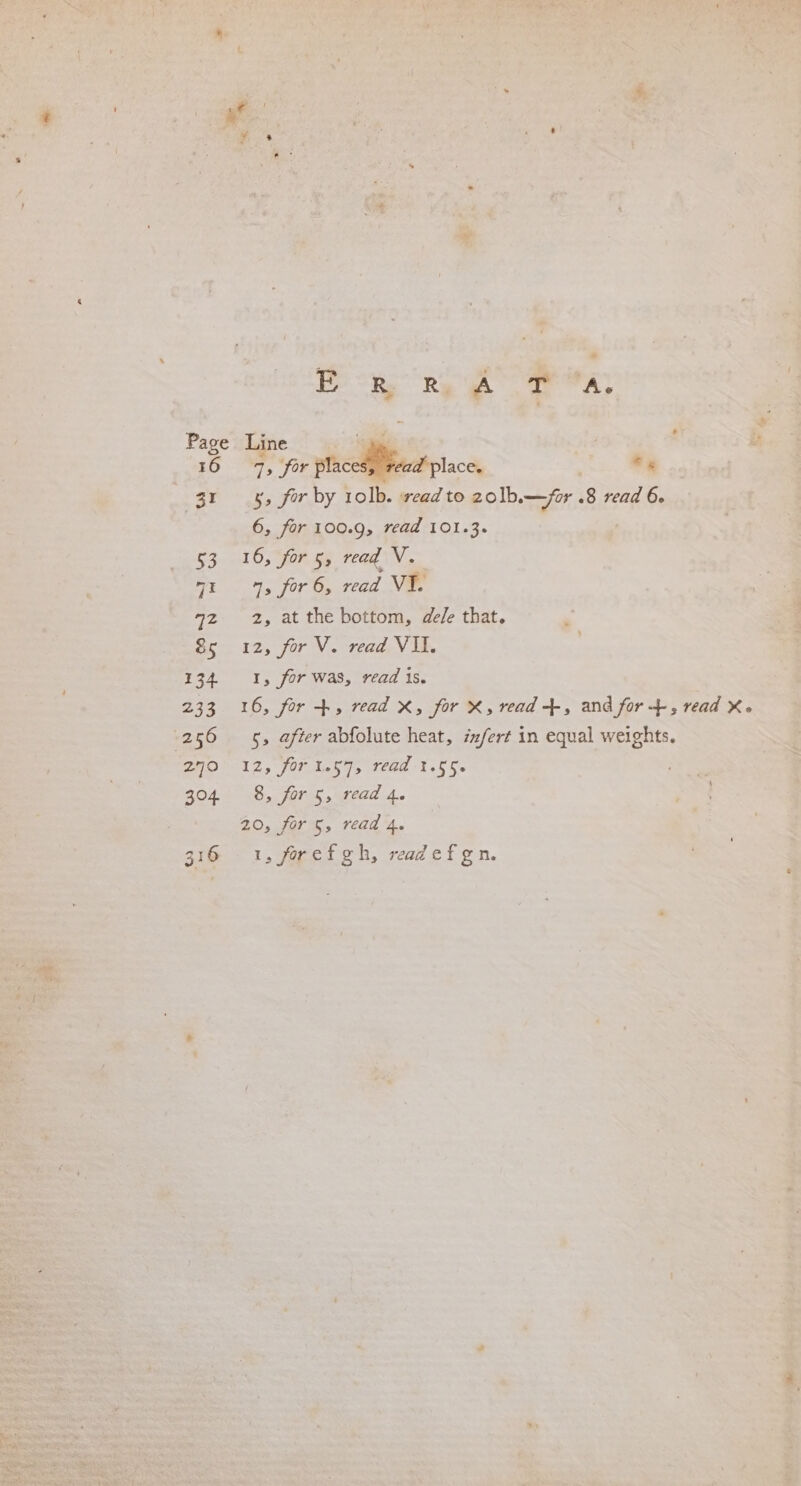 ERRATA.
Page Line
16 7, for places, read place.
31 5, for by 10lb. read to 20lb.—for .8 read 6.
6, for 100.9, read 101.3.
53 16, for 5, read V.
71 7, for 6, read VI.
72 2, at the bottom, dele that.
85 12, for V. read VII.
134 1, for was, read is.
233 16, for +, read ×, for ×, read +, and for +, read ×.
256 5, after abſolute heat, inſert in equal weights.
270 12, for 1.57, read 1.55.
304 8, for 5, read 4.
20, for 5, read 4.
316 1, for e f g h, read e f g n.